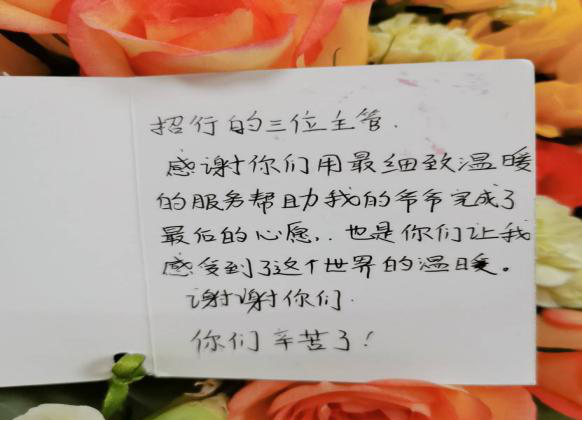 招行的三位主管.
感谢你们用最细致温暖
的服务帮助我的爷爷完成了
最后的心愿,. 也是你们让我
感受到了这个世界的温暖。
谢谢你们.
你们辛苦了!